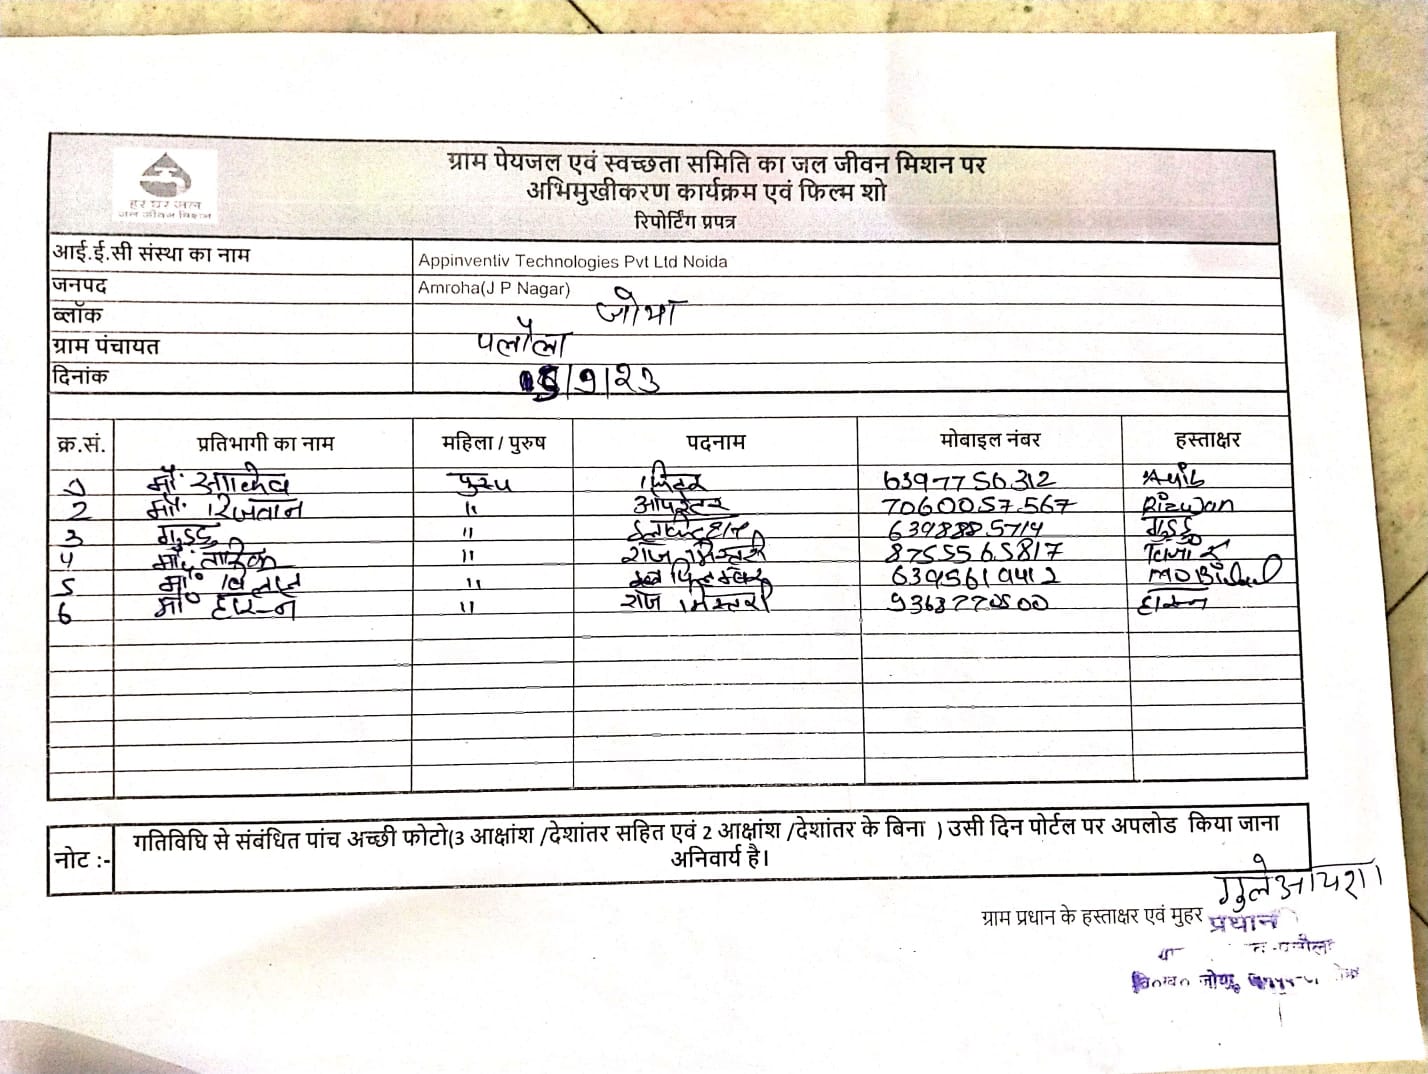 हर घर जल
जल जीवन मिशन
ग्राम पेयजल एवं स्वच्छता समिति का जल जीवन मिशन पर
अभिमुखीकरण कार्यक्रम एवं फिल्म शो
रिपोर्टिंग प्रपत्र
आई.ई.सी संस्था का नाम Appinventiv Technologies Pvt Ltd Noida
जनपद Amroha(J P Nagar)
ब्लॉक जोया
ग्राम पंचायत पलौला
दिनांक /9/23
क्र.सं. प्रतिभागी का नाम महिला / पुरुष पदनाम मोबाइल नंबर हस्ताक्षर
1 मौ. आकिब पुरुष फिटर 6397756312
2 मौ. रिजवान " ऑपरेटर 7060057567 Rizwan
3 गुड्डू " 6398885714 गुड्डू
4 मौ. तारिक " राज मिस्तरी 8755565817
5 मौ. बिलाल " 6395619412 MD Bilal
6 मौ. हसन " राज मिस्तरी 9368770500 हसन
नोट :- गतिविधि से संबंधित पांच अच्छी फोटो(3 आक्षांश /देशांतर सहित एवं 2 आक्षांश /देशांतर के बिना ) उसी दिन पोर्टल पर अपलोड किया जाना
अनिवार्य है।
गुले आयशा
ग्राम प्रधान के हस्ताक्षर एवं मुहर प्रधान